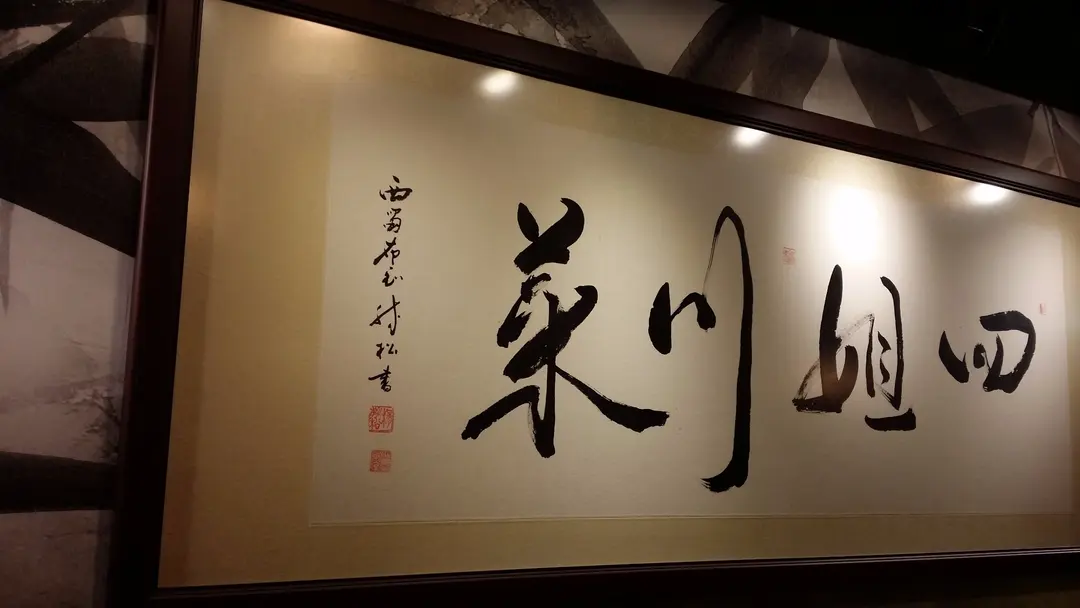 四姐川菜
西蜀布衣松書